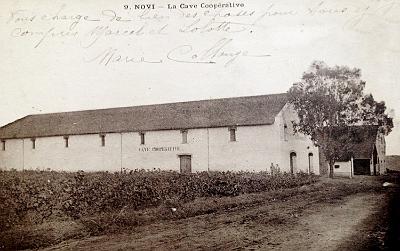 9. NOVI – La Cave Coopérative
Vous charge de bien des choses pour vous et y
compris Marcel et Lolotte
Marie
CAVE COOPERATIVE